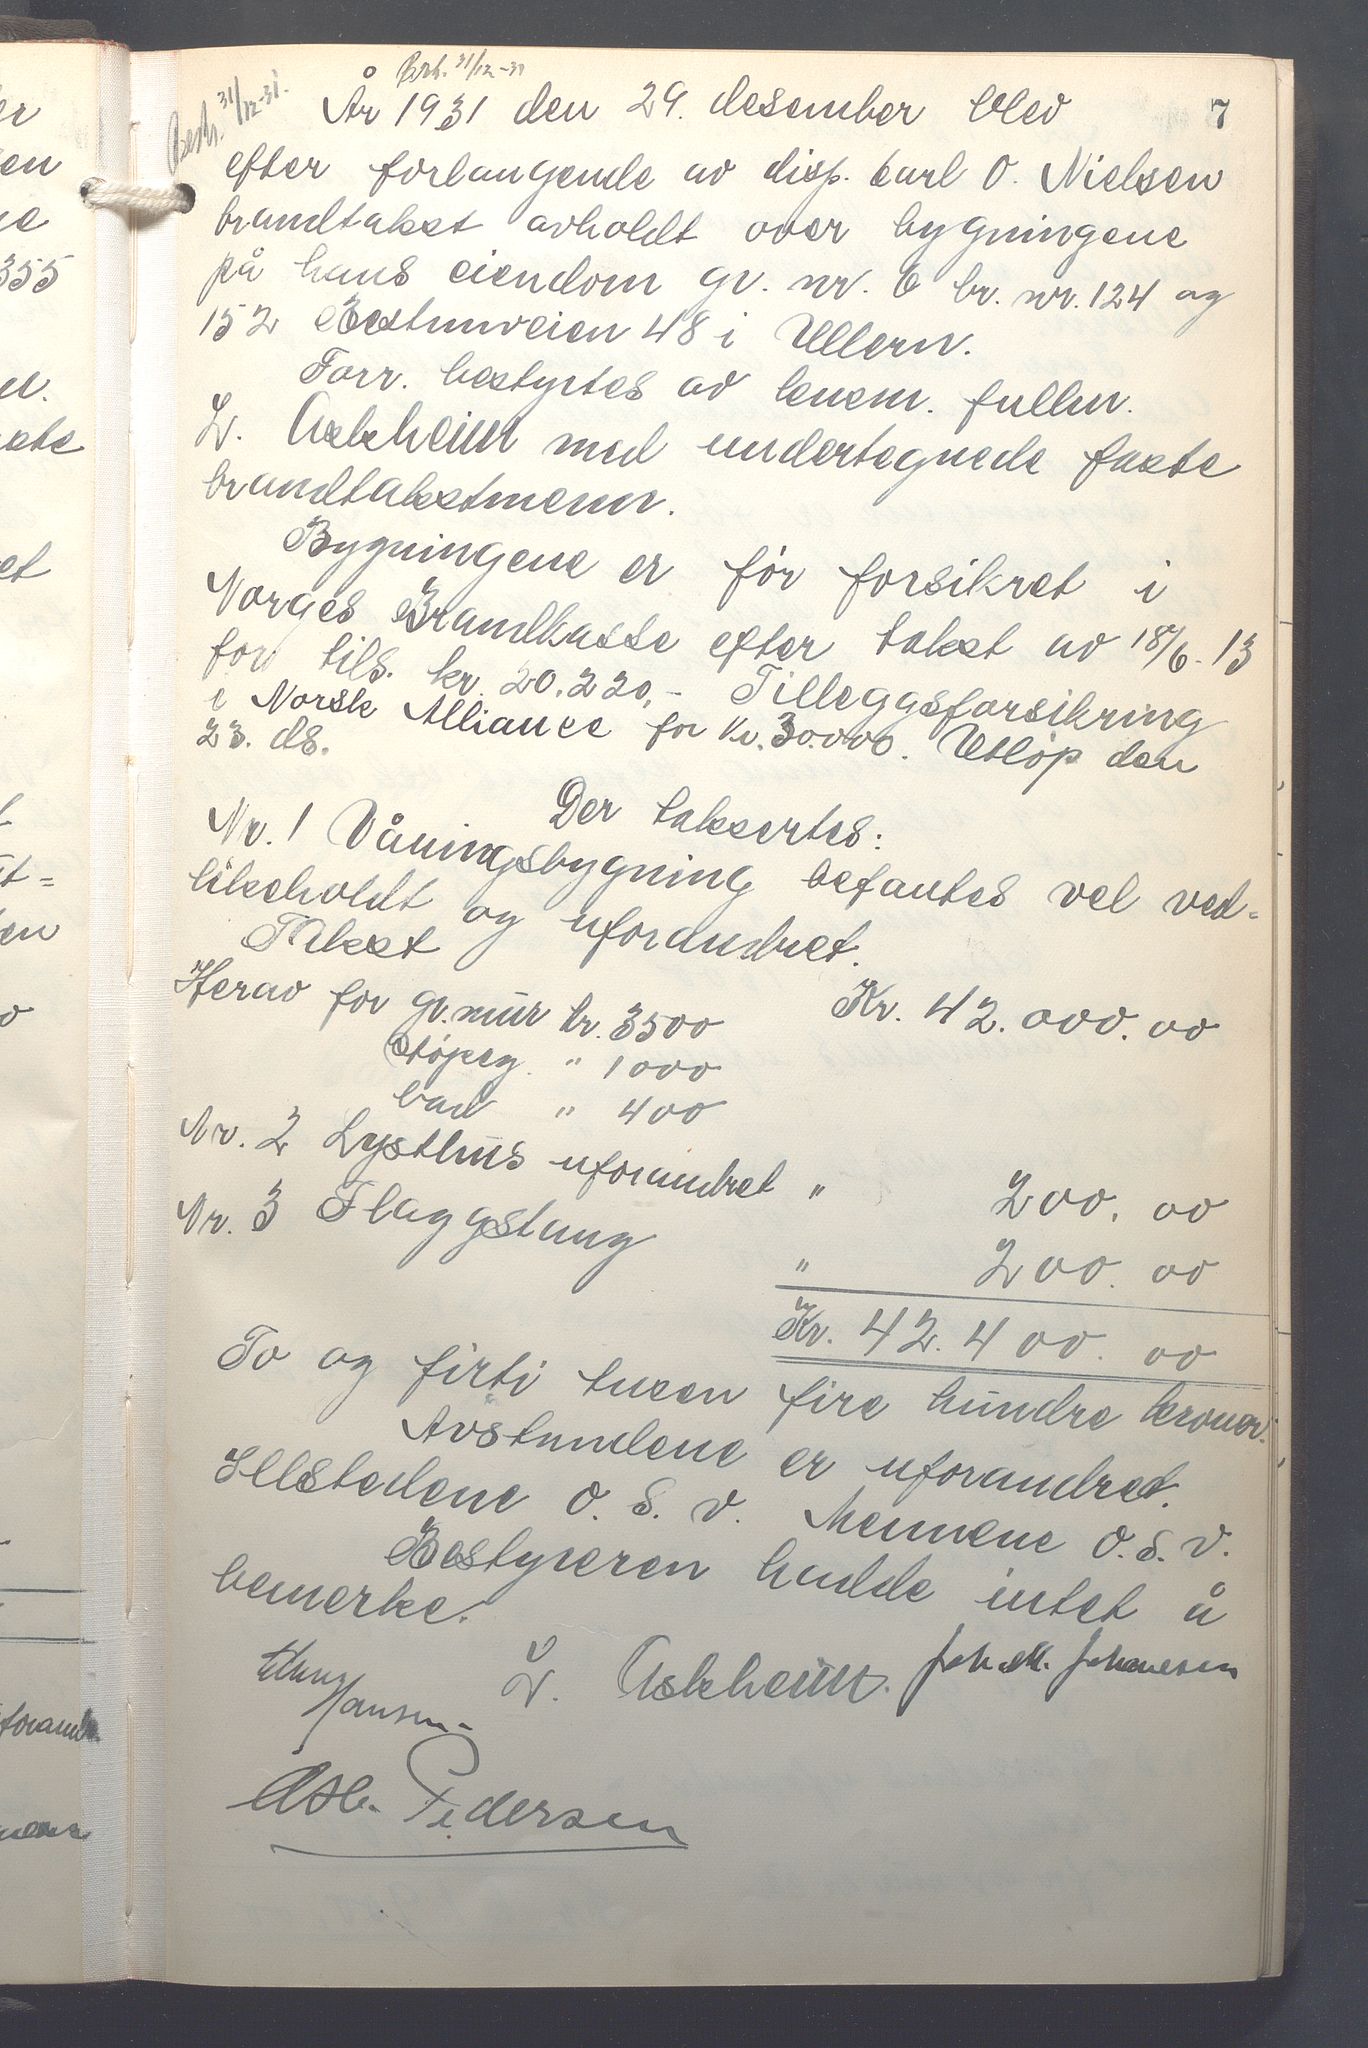 Besk. 31/12-31.
Besk. 31/12-31
7
År 1931 den 29. desember blev
efter forlangende av disp. Carl O. Nielsen
brandtakst avholdt over bygningene
på hans eiendom gr. nr. 6 br. nr. 124 og
152 Bestumveien 48 i Ullern.
Forr. bestyrtes av lensm. fullm.
L. Askheim med undertegnede faste
brandtakstmenn.
Bygningene er før forsikret i
Norges Brandkasse efter takst av 18/6-13
for tils. kr. 20.220,- Tilleggsforsikring
i Norsk Alliance for kr. 30.000. Utløp den
23. ds.
Der taksertes:
Nr. 1 Våningsbygning befantes vel ved-
likeholdt og uforandret.
Takst Kr. 42.000.00
Herav for gr.mur kr. 3500
støpeg. " 1000
bad " 400
Nr. 2 Lysthus uforandret " 200.00
Nr. 3 Flaggstang " 200.00
Kr. 42.400.00
To og firti tusen fire hundre kroner.
Avstandene er uforandret.
Ildstedene o.s.v. Mennene o.s.v.
Bestyreren hadde intet å
bemerke.
Hansen
L. Askheim.
Joh. M. Johannesen
Asb. Pedersen
355